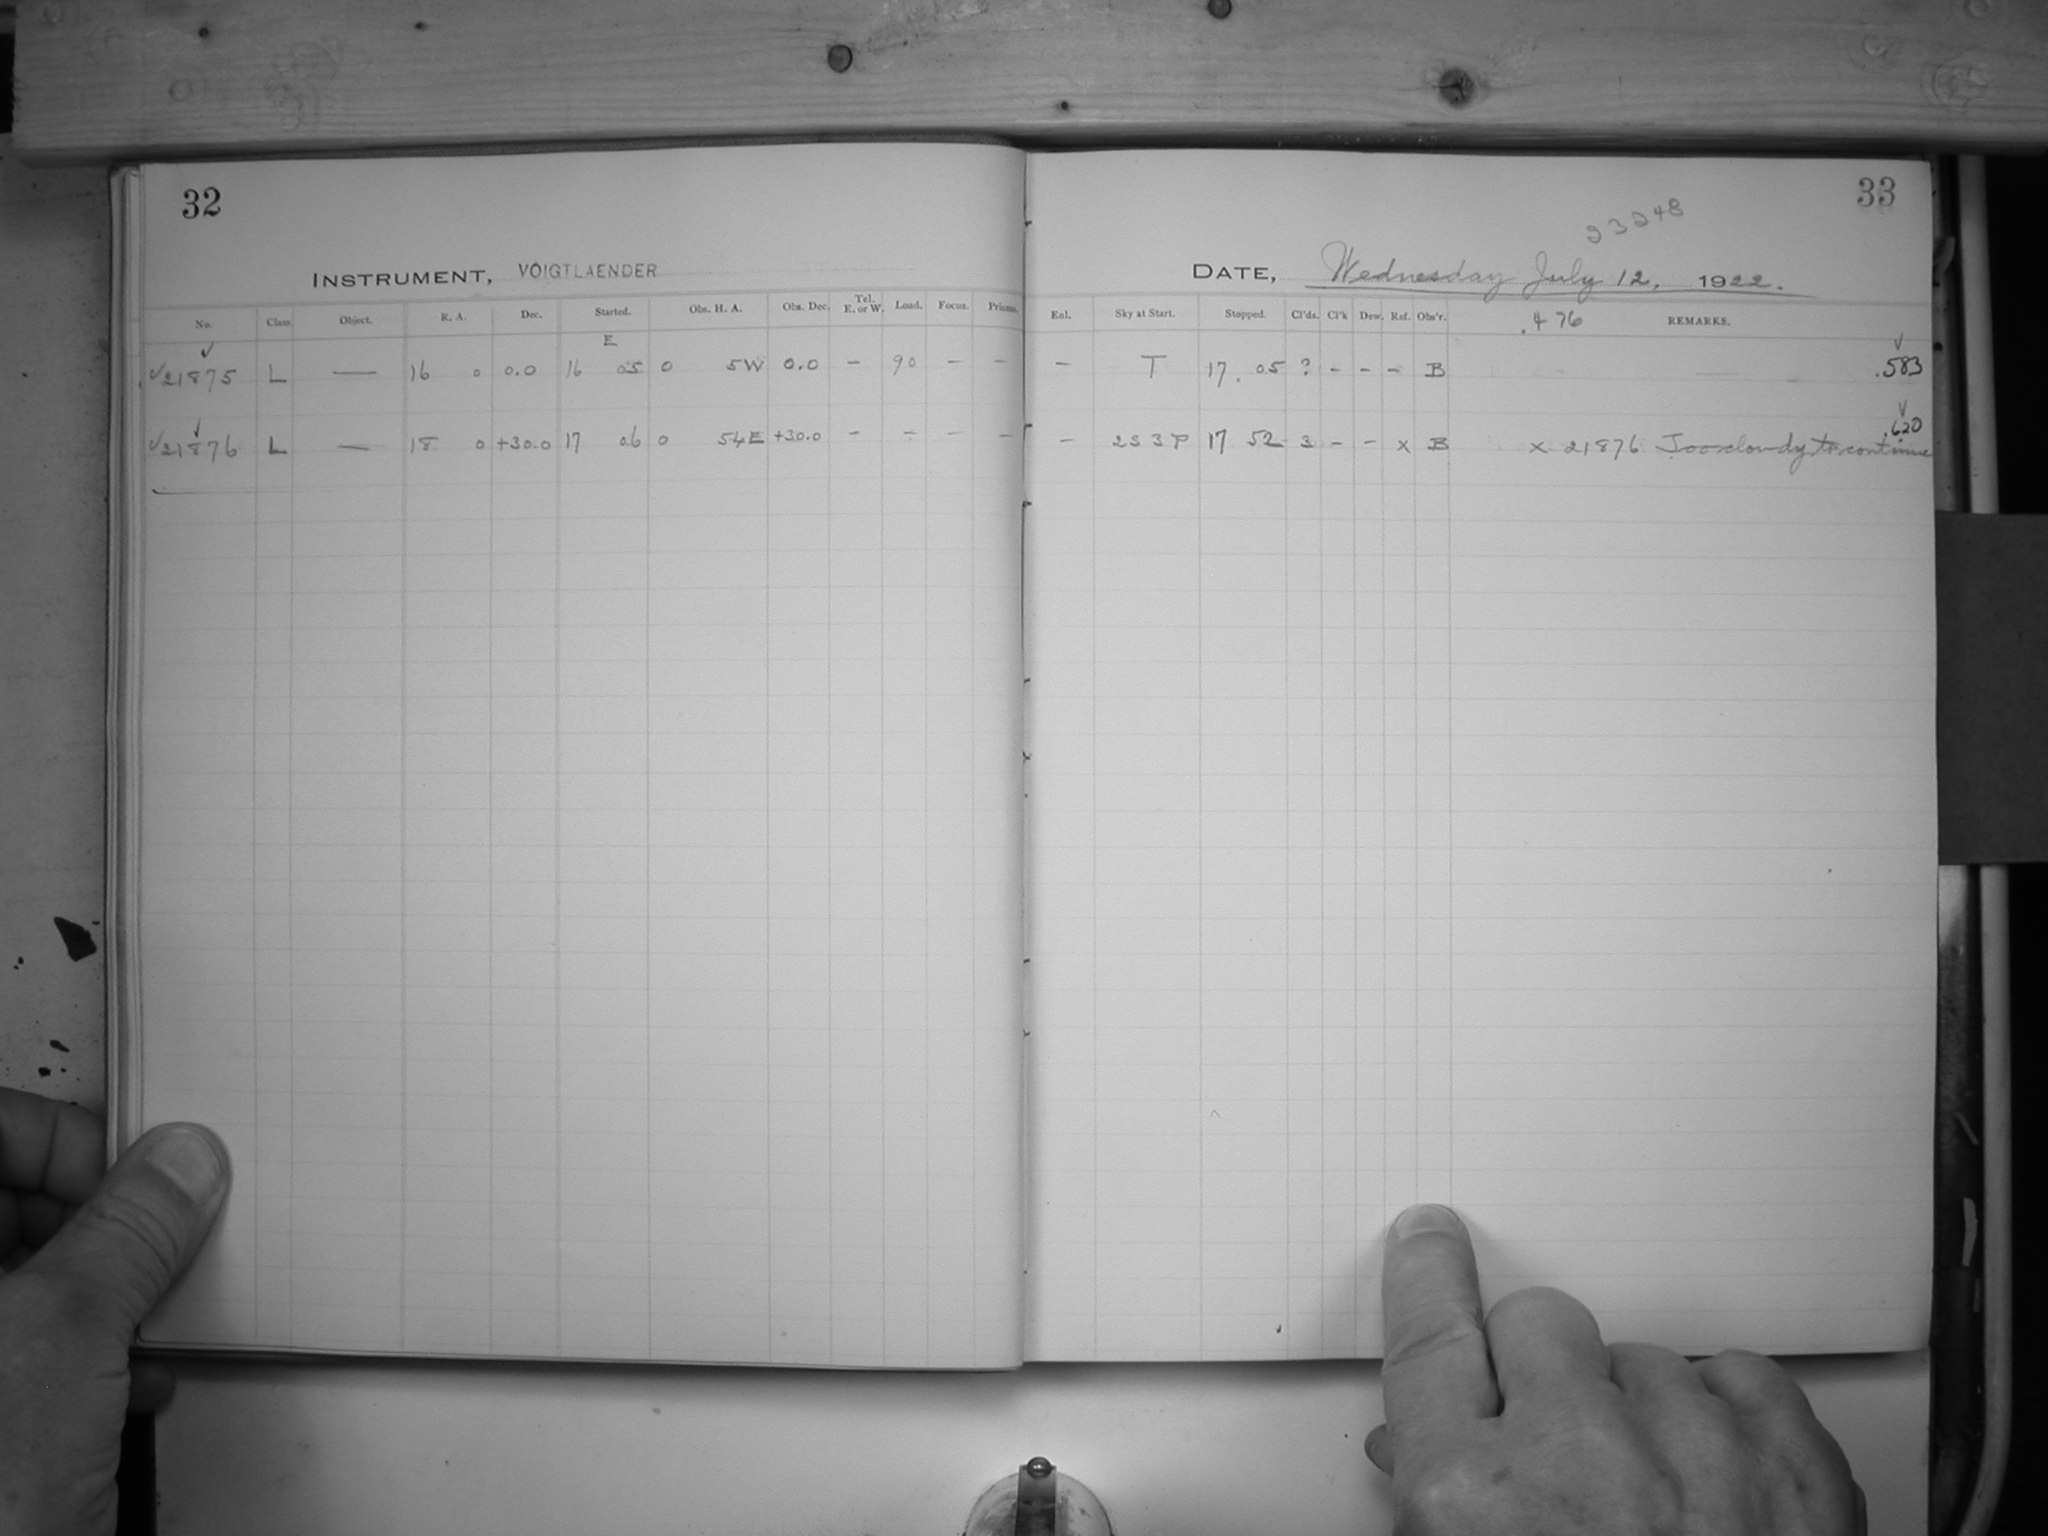 32
INSTRUMENT, VOIGTLAENDER
No. Class. Object. R. A. Dec. Started. Obs. H. A. Obs. Dec. Tel. E. or W. Load. Focus. Prisms.
E
✓21875 L — 16 0 0.0 16 05 0 5W 0.0 – 90 – –
✓21876 L — 18 0 +30.0 17 06 0 54E +30.0 – – – –
33
23248
DATE, Wednesday July 12, 1922.
Eal. Sky at Start. Stopped. Cl'ds. Cl'k Dew. Ref. Obs'r. .476 REMARKS.
– T 17. 05 ? – – – B .583
.620
– 2S 3P 17 52 3 – – x B x 21876 Too cloudy to continue